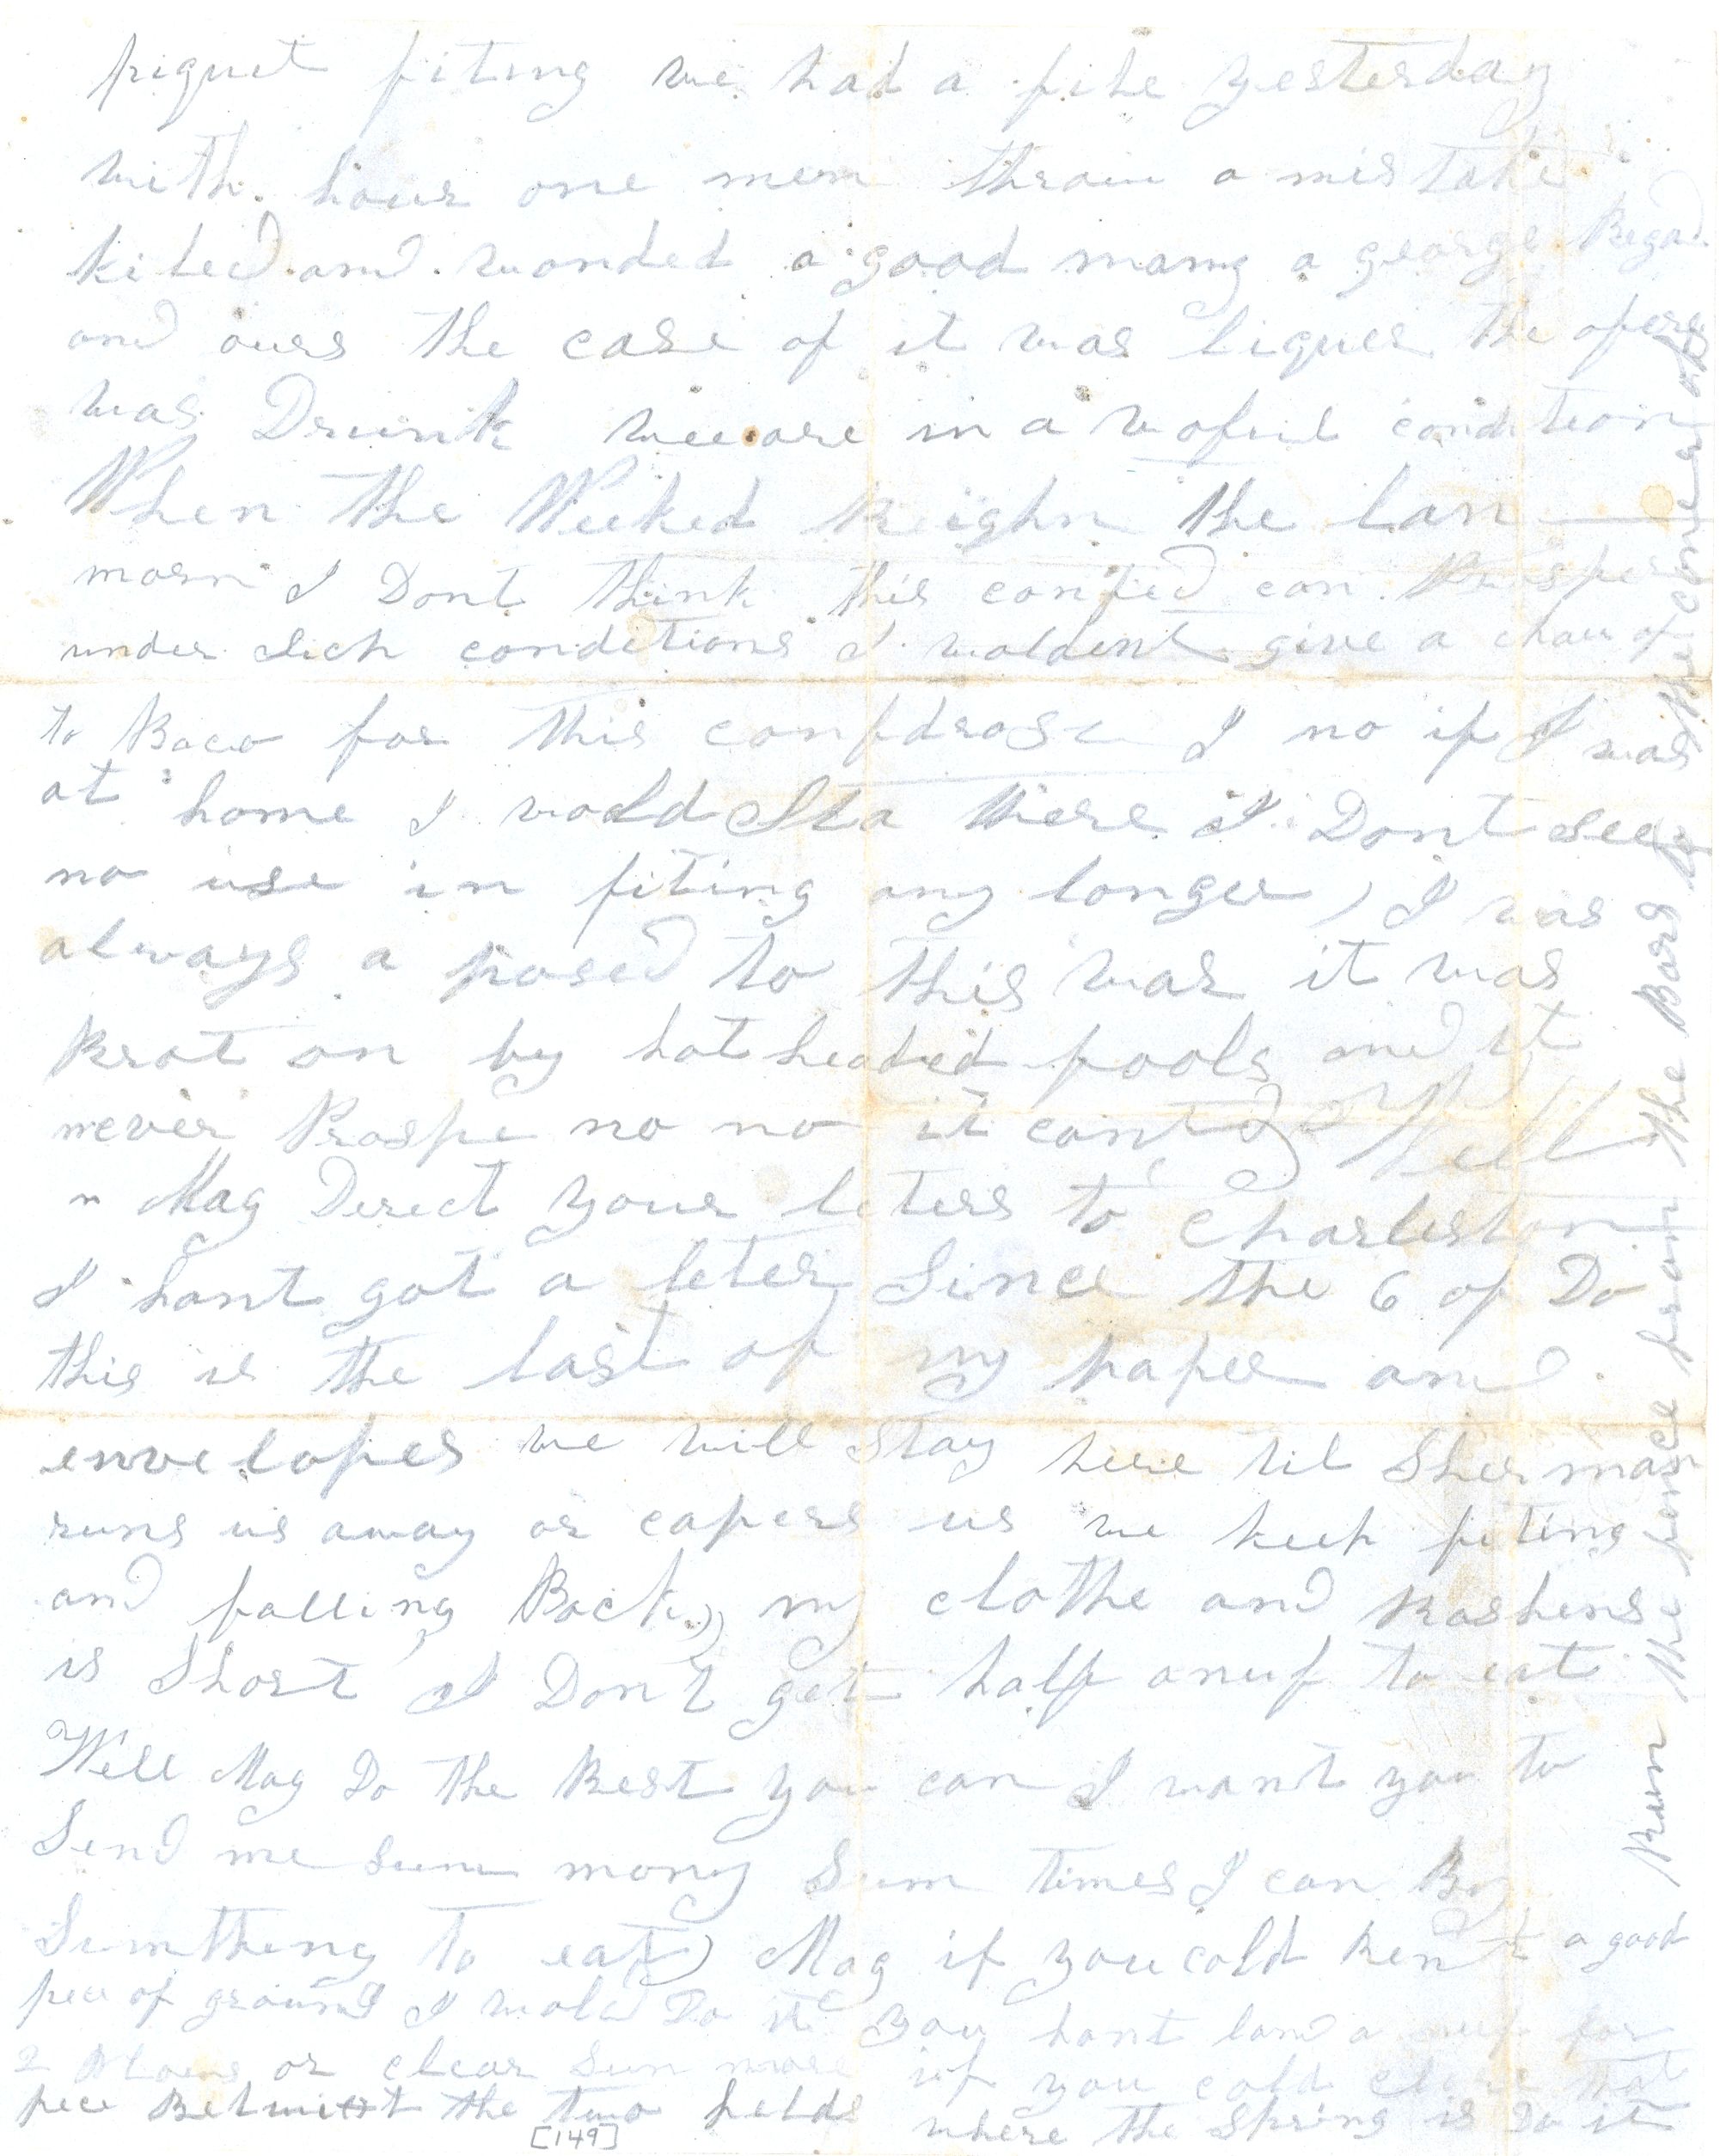 piquet fiting we had a fite yesterday
with hour one men throw a mistake
kiled and wonded a good many a george Regd
and ours the case of it was liquer the ofers
was Drunk wee are in a woful condition
When the Wicked Reighn the lan
morn I Dont think this confed can Prosper
under Sich conditions I woldent give a chaw of
to Baco for this confdrase I no if I was
at home I wold Sta there I Dont see
no use in fiting any longer, I was
always a posed to this war it was
Brot on by hot headed fools and it
never Prospe no no it cant Well
Mag Derect your leters to Charleston
I hant got a leter Since the 6 of Do
this is the last of my paper and
envelopes we will stay here til Sherman
runs us away or capers us we keep fiting
and falling Back, my clothe and Rashens
is Short I Dont get half anuf to eat
Well Mag Do the Best you can I want you to
Send me Sum mony Sum times I can By
Sumthing to eat) Mag if you cold Rent a good
pece of ground I wold Do it you hant land a nuf for
2 or clear Sum more if you cold clear that
pece Betwixt the two felds where the Spring is Do it
[149]
Run the fence from the Bars to the corner of